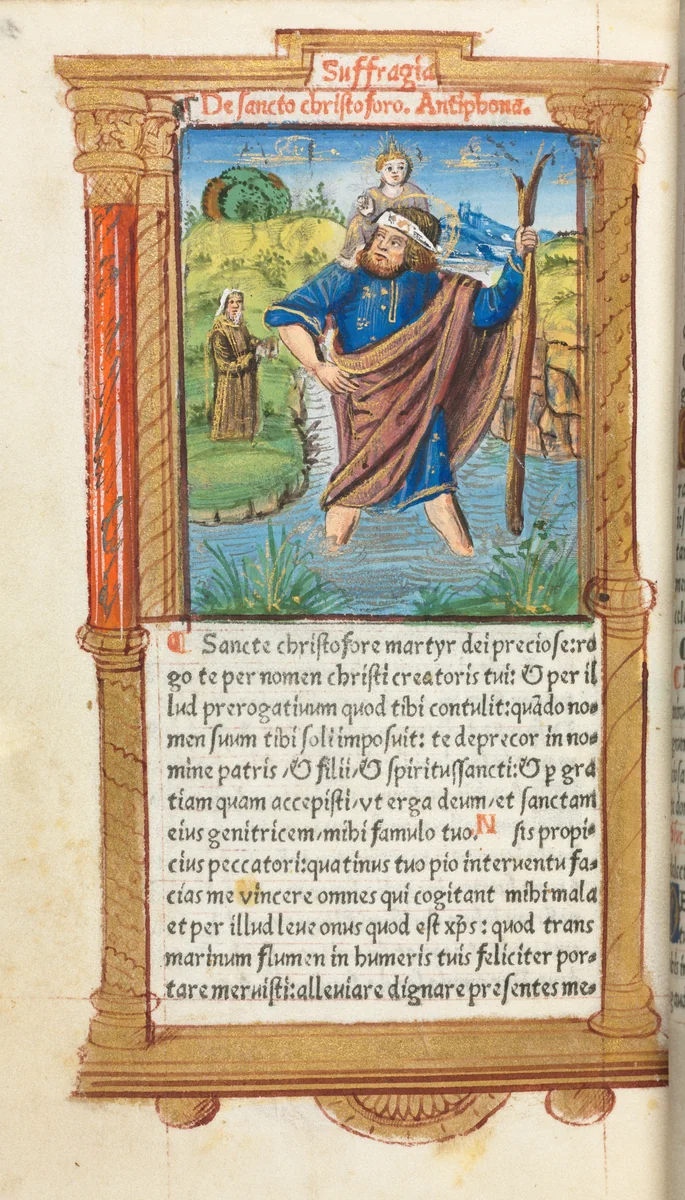 Suffragia
De sancto christoforo. Antiphona.
¶ Sancte christofore martyr dei preciose:ro
go te per nomen christi creatoris tui: & per il
lud prerogatiuum quod tibi contulit:quãdo no-
men suum tibi soli imposuit: te deprecor in no-
mine patris /& filii/& spiritussancti:& ꝑ gra
tiam quam accepisti/vt erga deum/et sanctam
eius genitricem/mihi famulo tuo. N sis propi-
cius peccatori:quatinus tuo pio interuentu fa-
cias me vincere omnes qui cogitant mihi mala
et per illud leue onus quod est xp̃s : quod trans
marinum flumen in humeris tuis feliciter por-
tare meruisti:alleuiare dignare presentes me-